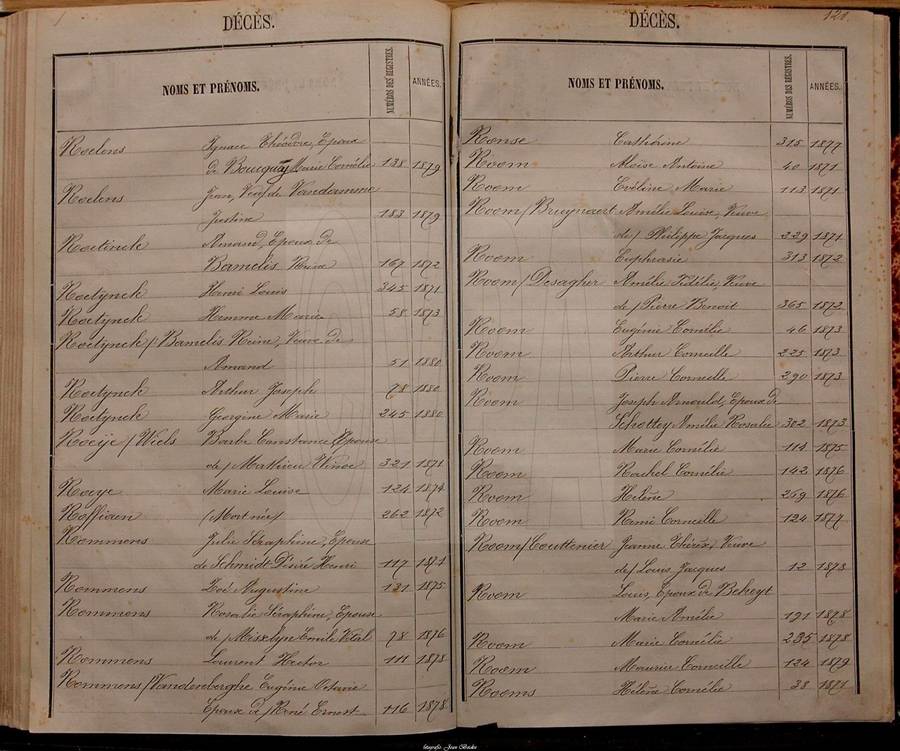 DÉCÈS.
NOMS ET PRÉNOMS. NUMÉROS DES REGISTRES. ANNÉES.
Roelens Ignace Théodore, Epoux
de Bourguy Marie Cornélie 138 1879
Roelens Jean, Veuf de Vandamme
Justine 183 1879
Roetinck Amand, Epoux de
Bamelis Reine 167 1872
Roetynck Henri Louis 345 1871
Roetynck Hemme Marie 58 1873
Roetynck / Bamelis Reine, Veuve de
Amand 51 1880
Roetynck Arthur Joseph 78 1880
Roetynck Georgine Marie 245 1880
Roeije / Wiels Barbe Constance, Epouse
de Mathieu Winoc 321 1871
Roeye Marie Louise 124 1874
Roffiaen (Mort né) 262 1872
Rommens Julie Séraphine, Epouse
de Schmidt Désiré Henri 117 1871
Rommens Zoé Augustine 131 1875
Rommens Rosalie Séraphine, Epouse
de Misselyn Emile Vital 78 1876
Rommens Laurent Hector 111 1878
Rommens / Vandenberghe Eugénie Octavie
Epouse de René Ernest 116 1878
DÉCÈS. 120.
NOMS ET PRÉNOMS. NUMÉROS DES REGISTRES. ANNÉES.
Ronse Cathérine 315 1877
Room Aloïse Antoine 40 1871
Room Evéline Marie 113 1871
Room / Bruynaert Amélie Louise, Veuve
de Philippe Jacques 229 1871
Room Euphrasie 313 1872
Room / Desagher Amélie Fidélie, Veuve
de Pierre Benoit 365 1872
Room Eugénie Cornélie 46 1873
Room Arthur Corneille 225 1873
Room Pierre Corneille 290 1873
Room Joseph Arnould, Epoux de
Schottey Amélie Rosalie 302 1873
Room Marie Cornélie 114 1875
Room Rachel Cornélie 142 1876
Room Hélène 269 1876
Room Remi Corneille 124 1877
Room / Couttenier Jeanne Thérèse, Veuve
de Louis Jacques 12 1873
Room Louis, Epoux de Beheyt
Marie Amélie 191 1878
Room Marie Cornélie 235 1878
Room Maurice Corneille 124 1879
Rooms Hélène Cornélie 38 1871
fotografie Jean Baeke